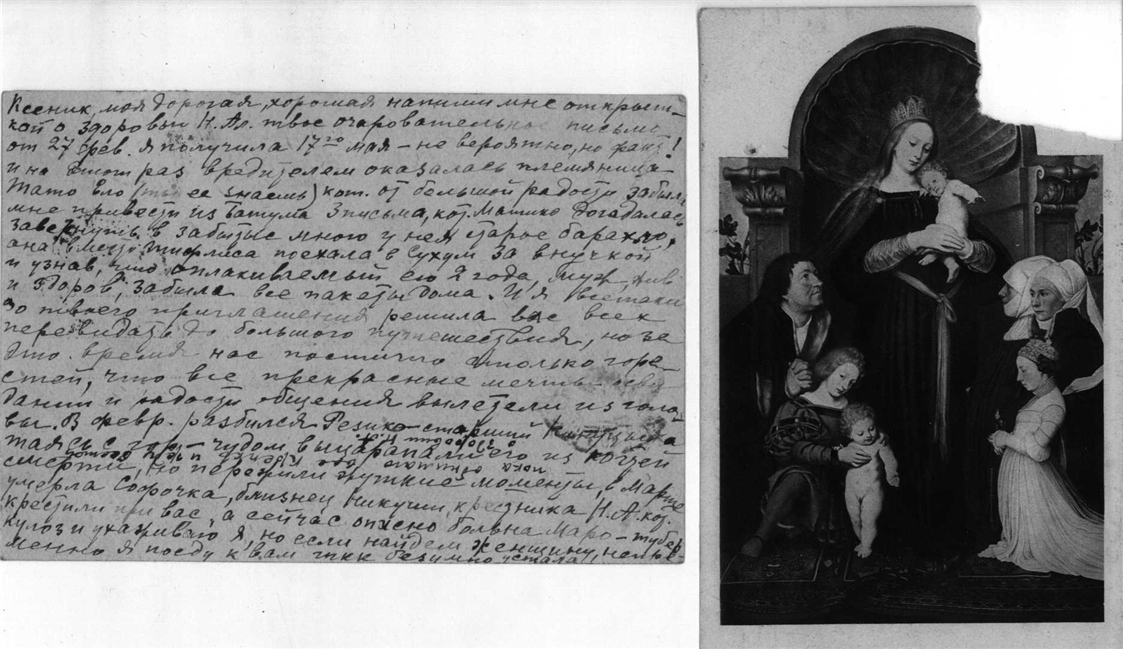 Ксеник, моя дорогая, хорошая напиши мне открыт-
кой о здоровьи Н. Ал. твое очаровательное письмо
от 27 фев. я получила 17го мая — не вероятно, но факт!
и на этот раз вредителем оказалась племянница
Тато Елю (ты ее знаешь) кот. от большой радости забыла
мне привести из Батума 3 письма, кот. Машико догадалась
завернуть в забытые много у нея старое барахло,
она вместо Тифлиса поехала в Сухум за внучкой
и узнав, что оплакиваемый ею 2 года, муж жив
и здоров, забыла все пакеты дома. И я всетаки
до твоего приглашения решила вас всех
перевидать до большого путешествия, но за
это время нас постигло столько горе-
стей, что все прекрасные мечты
дании и радости общения вылетели из голо-
вы. В февр. разбился Резико старший
таясь с гор — чудом выцарапали его из когтей
смерти, но пережили жуткие моменты, в Марте
умерла Софочка, близнец Никуши, крестника Н. А. кот.
крестили при вас, а сейчас опасно больна Маро — тубер
кулоз и ухаживаю я, но если найдем женщину,
менно я поеду к вам ткк безумно устала